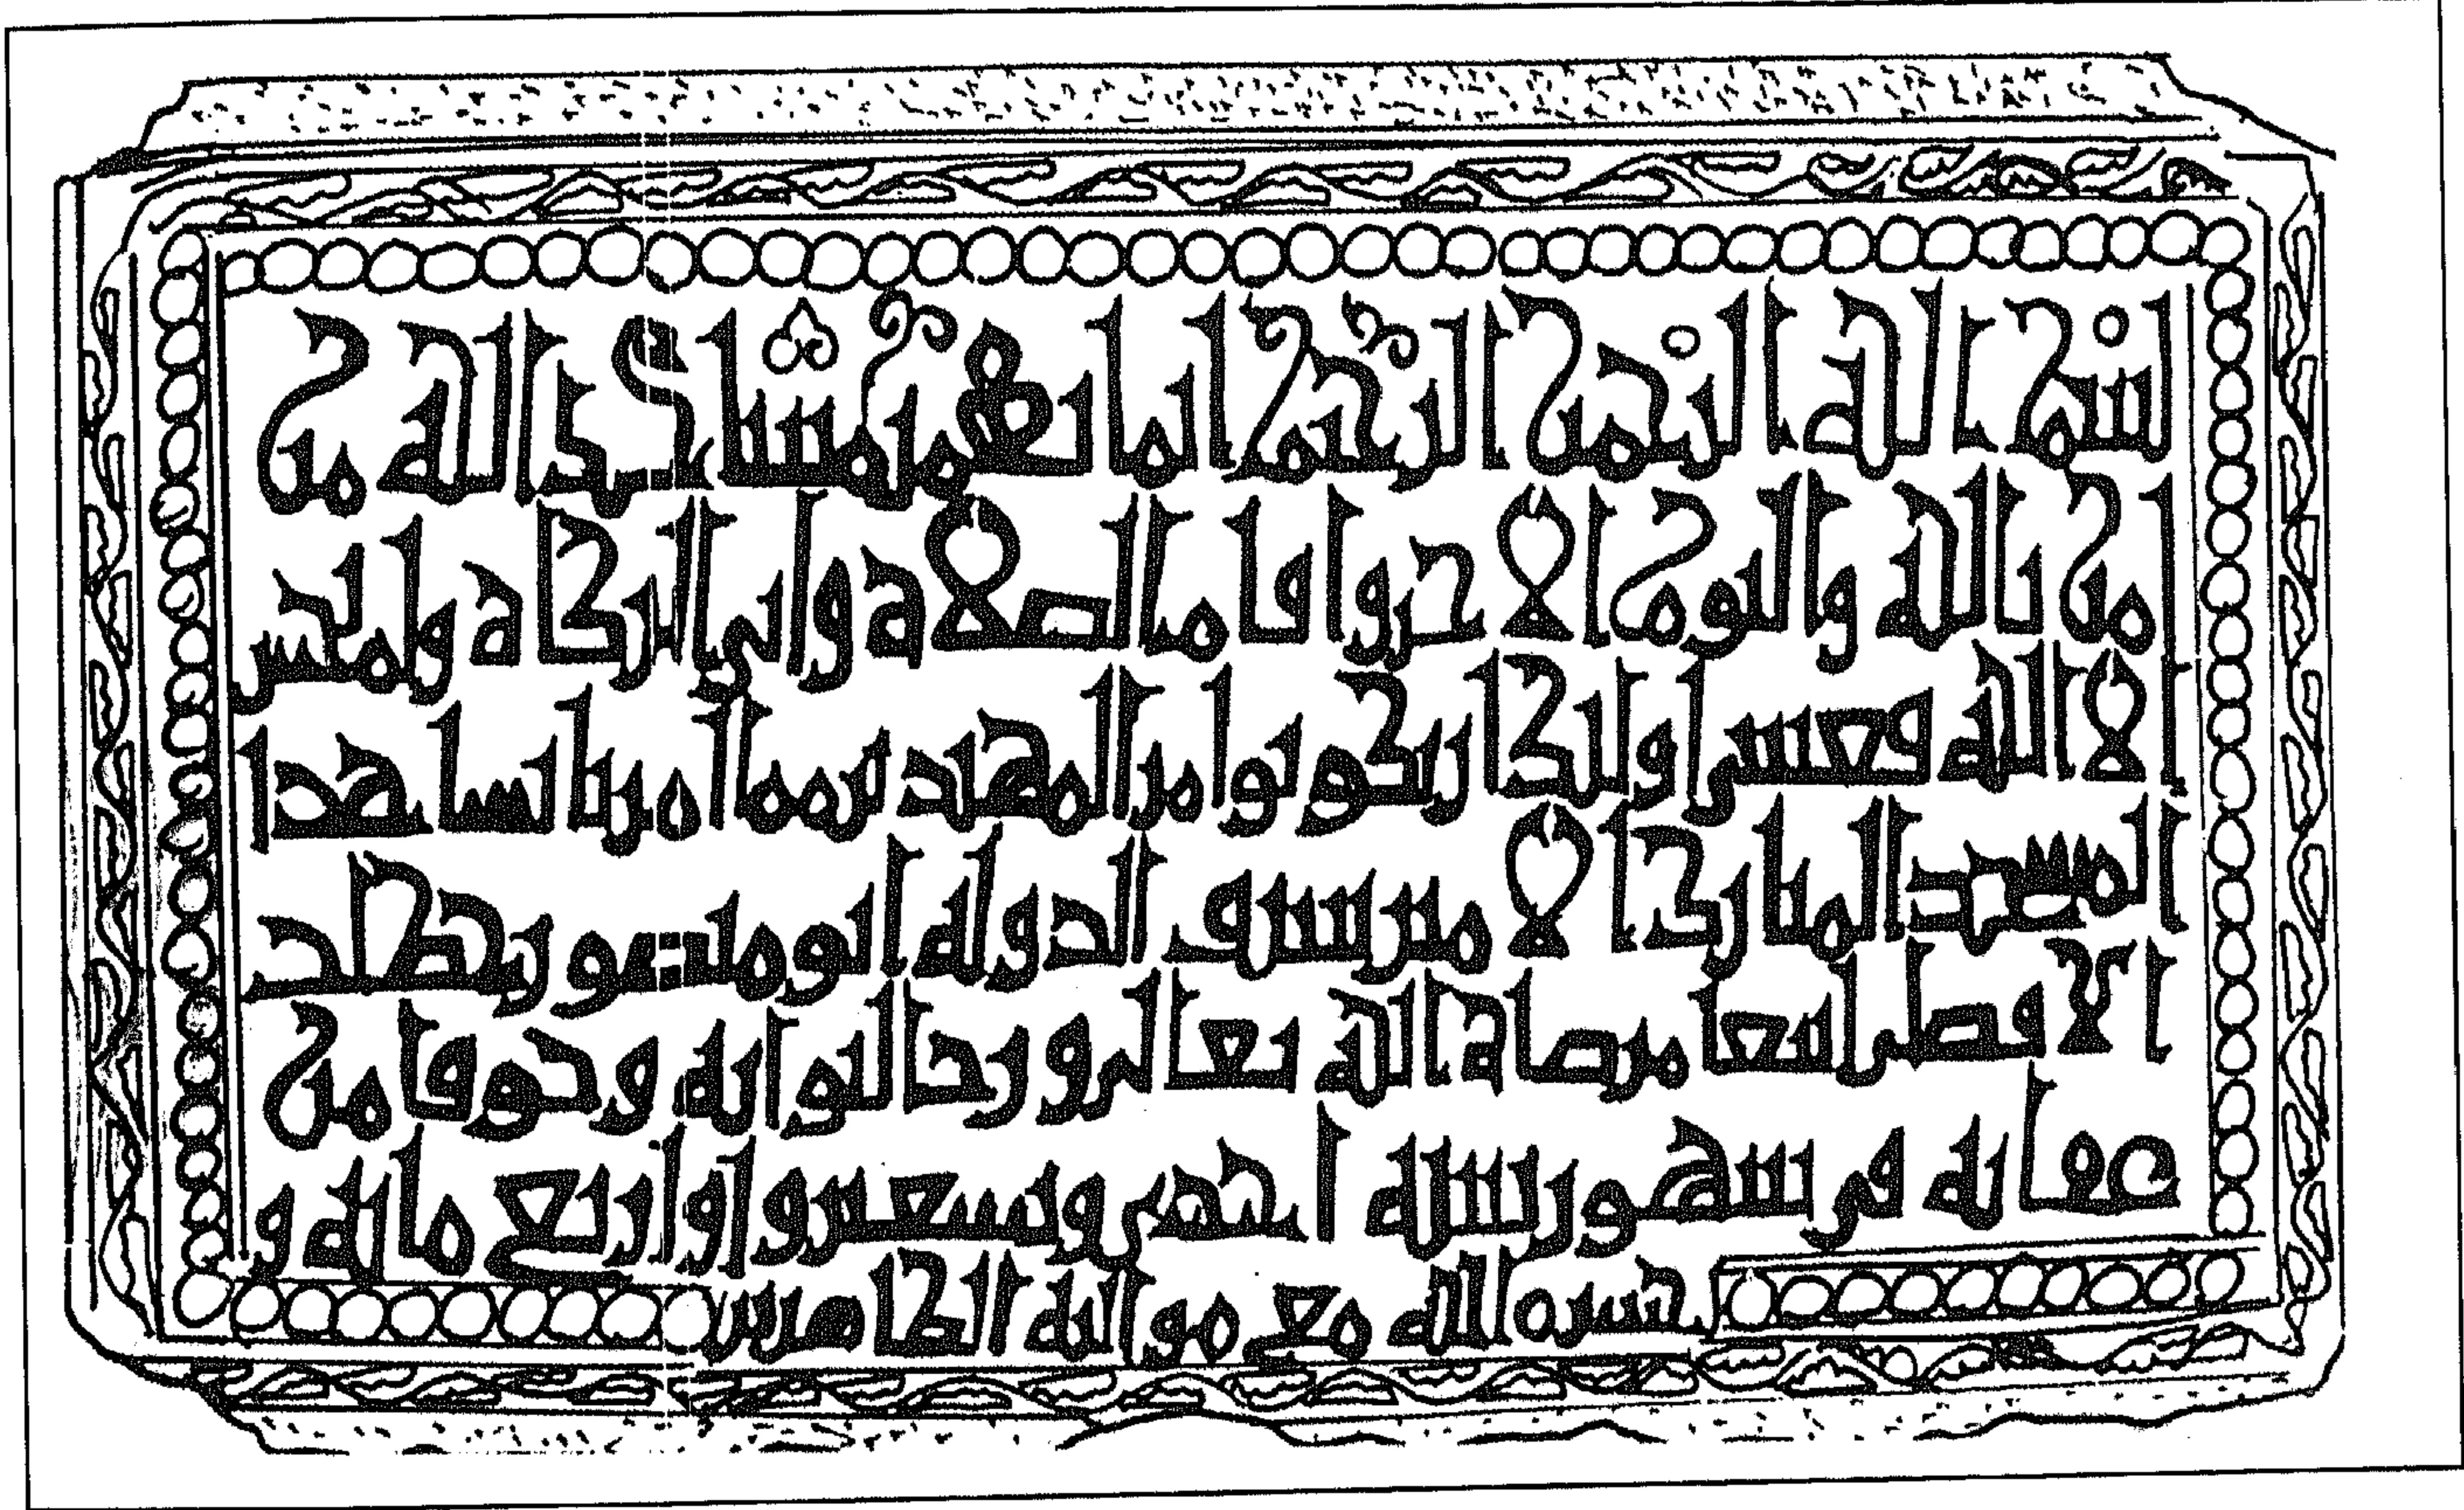 بسم الله الرحمن الرحيم انما يعمر مساجد الله من
امن بالله واليوم الاخر واقام الصلاة واتى الزكاة ولم يخش
الا الله فعسى اولئك ان يكونوا من المهتدين مما امر بانشا هذا
المسجد المبارك الامير سيف الدولة ابو منصور
الافضلى ابتغا مرضاة الله تعالى ورجا ثوابه وخوفا من
عقابه في شهور سنة احدى وتسعين واربع مائة و
حشره الله مع مواليه الطاهرين